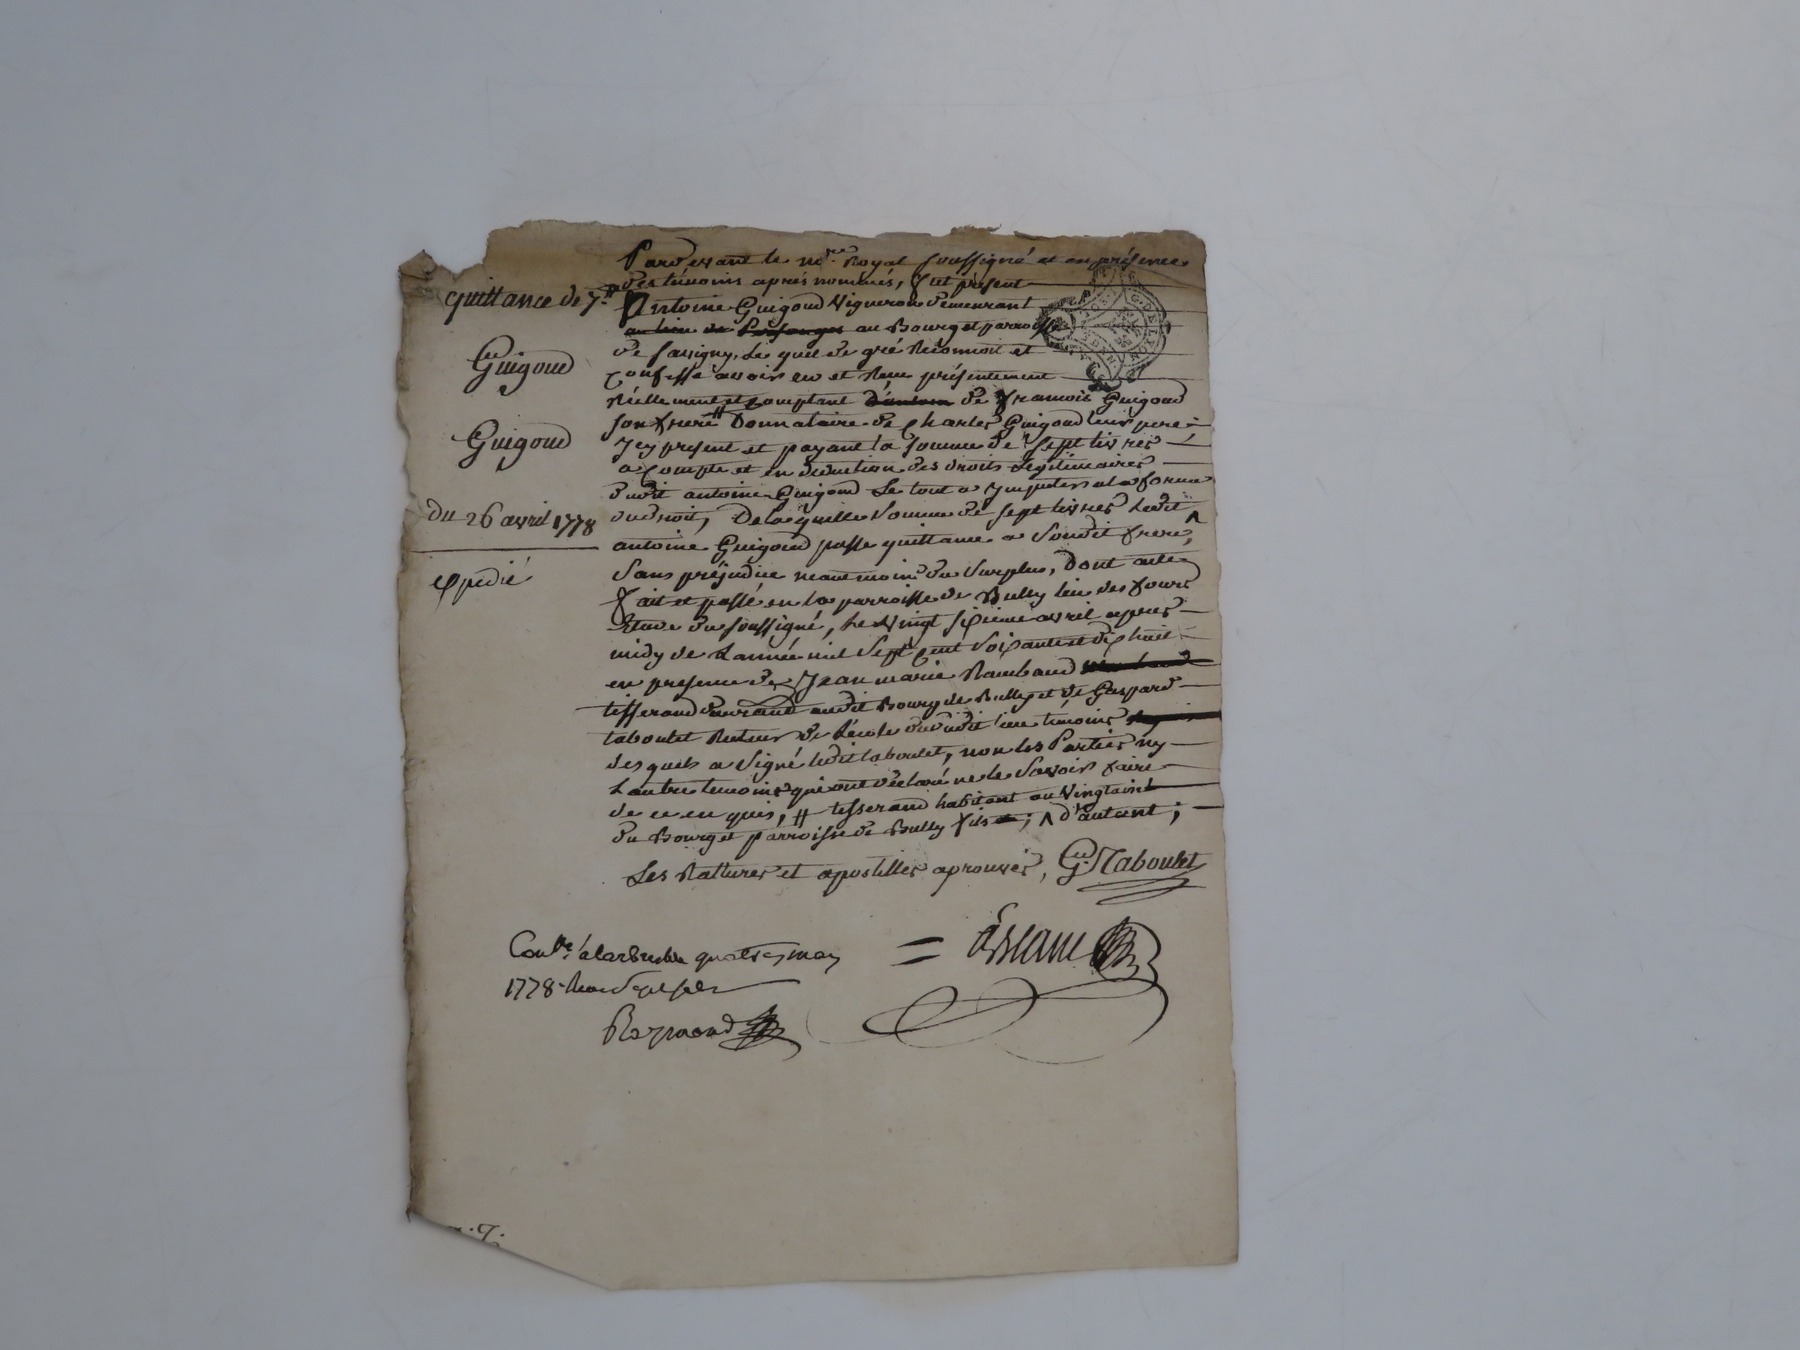 Pardevant le no.re Royal soussigné et en présence
des témoins après nommés, fut présent
quittance de 7.#
Antoine Guigoud Vigneron demeurant
au lieu de au Bourg et parroisse
de Savigny, Lequel de gré Reconnoit et
Guigoud
confesse avoir eu et Reçu présentement
Réellement et comptant d'antoine de francois Guigoud
son frere # Donnataire de Charles Guigoud leur pere
Guigoud
Icy présent et payant la somme de sept livres
a compte et en déduction des droits Légitimaires
dudit antoine Guigoud Le tout a Imputer a la forme
du 26 avril 1778
du droit, De laquelle somme de sept livres Ledit
antoine Guigoud passe quittance a Sondit frere, ^
expedié
Sans préjudice neantmoins du Surplus, Dont acte
fait et passé en la parroisse de Bully lieu des fours
Etude du soussigné, Le vingt sixieme avril apres
midy de Lannée mil Sept cent Soixante et dix huit
en presence de Jean marie Rambaud
tisserand demeurant audit Bourg de Bully et de Gaspard
taboulet Recteur de Lécole dudit lieu témoins
desquels a Signé ledit taboulet, non les Parties ny
Lautre temoins qui ont déclaré ne le Savoir faire
de ce enquis, # tisserand habitant au Vingtain
du Bourg et parroisse de Bully fils ; ^ d'autant ;
Les Ratures et apostilles aprouvés, G. Taboulet
Con.lé à larbresle quatre may
1778 Reçu
Raymond